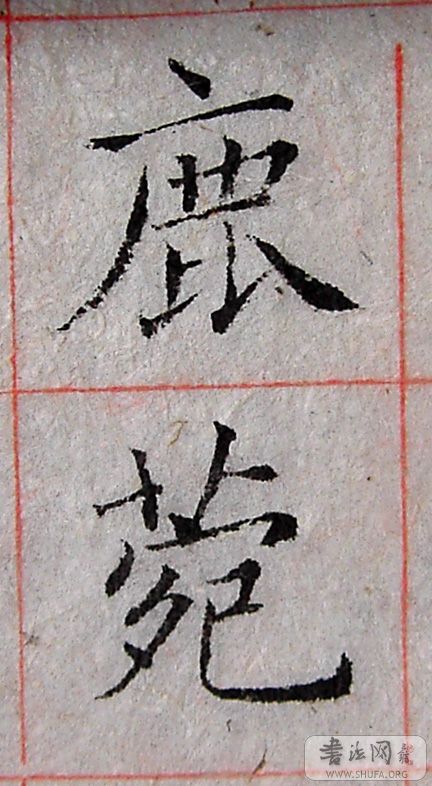 鹿
苑
書法网
WWW.SHUFA.ORG